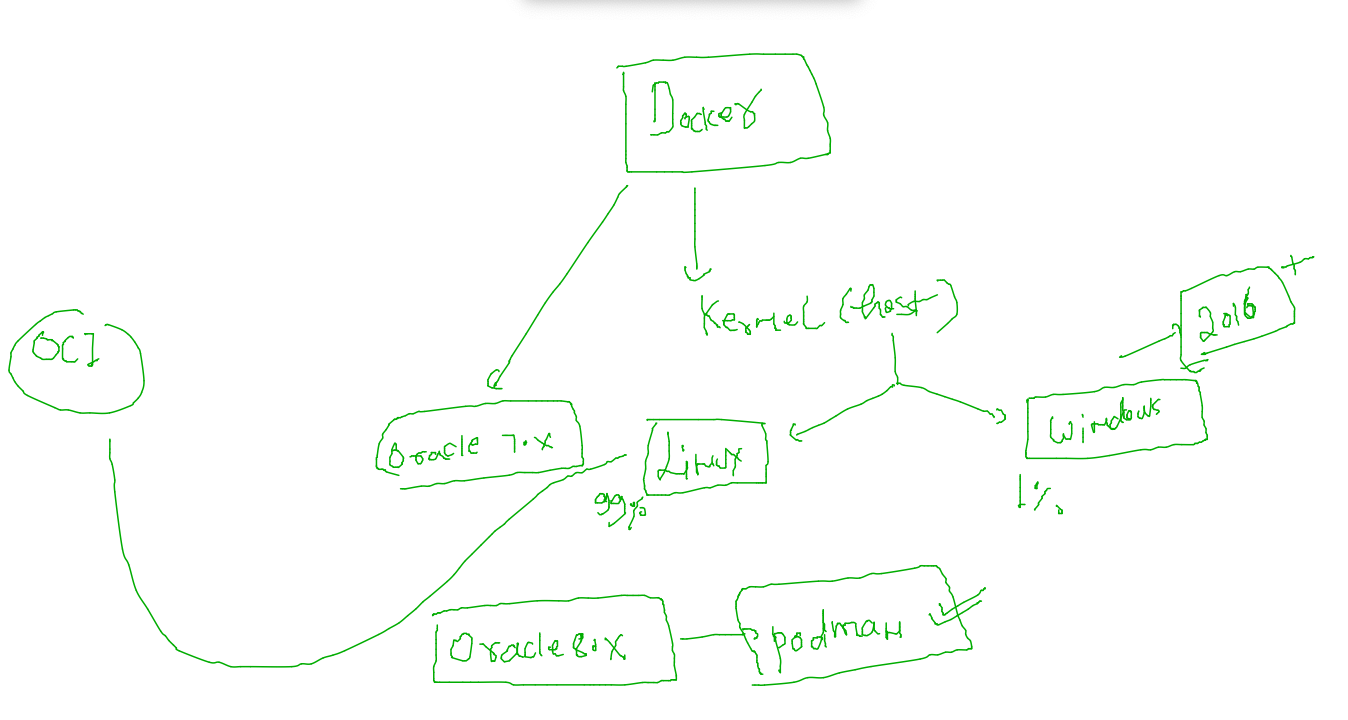 Docker
Kernel (host)
2016 +
OCI
Oracle 7.x
Linux
Windows
99%
1%
Oracle 8.x
podman